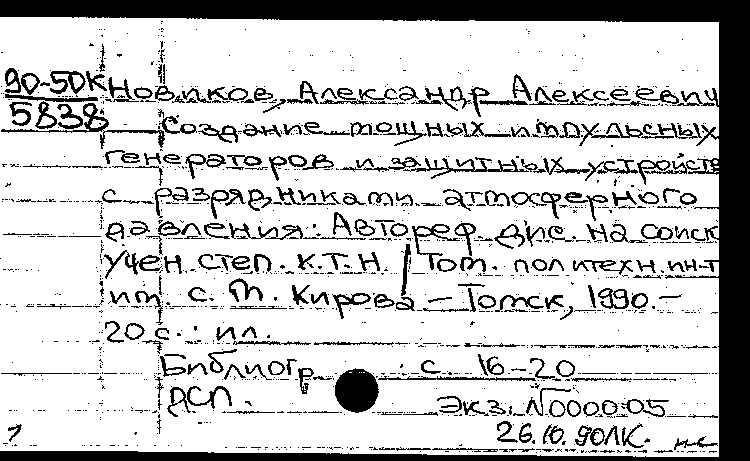 90-5DK Новиков, Александр Алексеевич
5838 Создание мощных импульсных
генераторов и защитных устройств
с разрядниками атмосферного
давления: Автореф. дис. на соиск
учен. степ. к.т.н / Том. политехн. ин-т
им. С. М. Кирова – Томск, 1990.–
20 с. : ил.
Библиогр. : с 16-20
ДСП.
Экз. №000005
26.10.90ЛК.